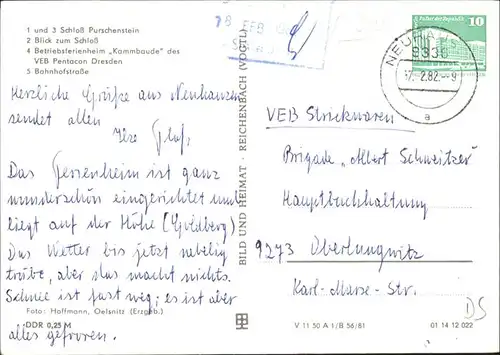 1 und 3 Schloß Purschenstein
2 Blick zum Schloß
4 Betriebsferienheim „Kammbaude" des
VEB Pentacon Dresden
5 Bahnhofstraße
Herzliche Grüße aus Neuhausen
sendet allen
Das Ferienheim ist ganz
wunderschön eingerichtet und
liegt auf der Höhe (Goldberg)
Das Wetter bis jetzt nebelig
trübe, aber das macht nichts.
Schnee ist fast weg, es ist aber
alles gefroren.
Foto: Hoffmann, Oelsnitz (Erzgeb.)
DDR 0,25 M
BILD UND HEIMAT · REICHENBACH (VOGTL)
FEB
10
-7.2.82.-9
a
VEB Strickwaren
Brigade „Albert Schweitzer"
Hauptbuchhaltung
9273 Oberlungwitz
Karl-Marx-Str.
DS
V 11 50 A 1/B 56/81
01 14 12 022